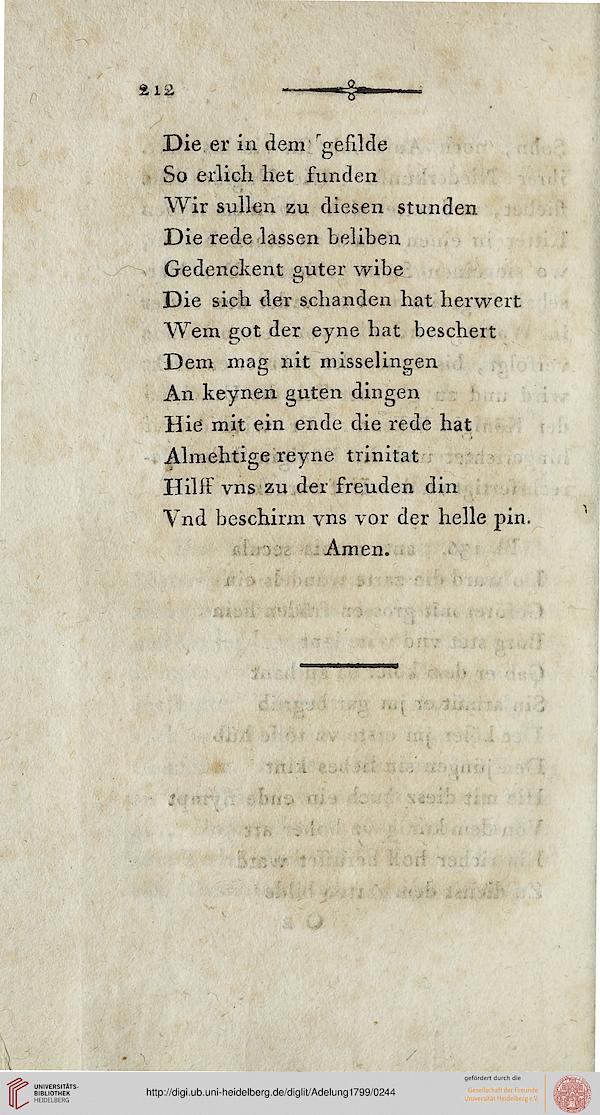 212
Die er in dem gefilde
So erlich het funden
Wir sullen zu diesen stunden
Die rede lassen beliben
Gedenckent guter wibe
Die sich der schanden hat herwert
Wem got der eyne hat beschert
Dem mag nit misselingen
An keynen guten dingen
Hie mit ein ende die rede hat
Almehtige reyne trinitat
Hilff vns zu der freuden din
Vnd beschirm vns vor der helle pin.
Amen.
UNIVERSITÄTS-
BIBLIOTHEK
HEIDELBERG
http://digi.ub.uni-heidelberg.de/diglit/Adelung1799/0244
gefördert durch die
Gesellschaft der Freunde
Universität Heidelberg e.V.